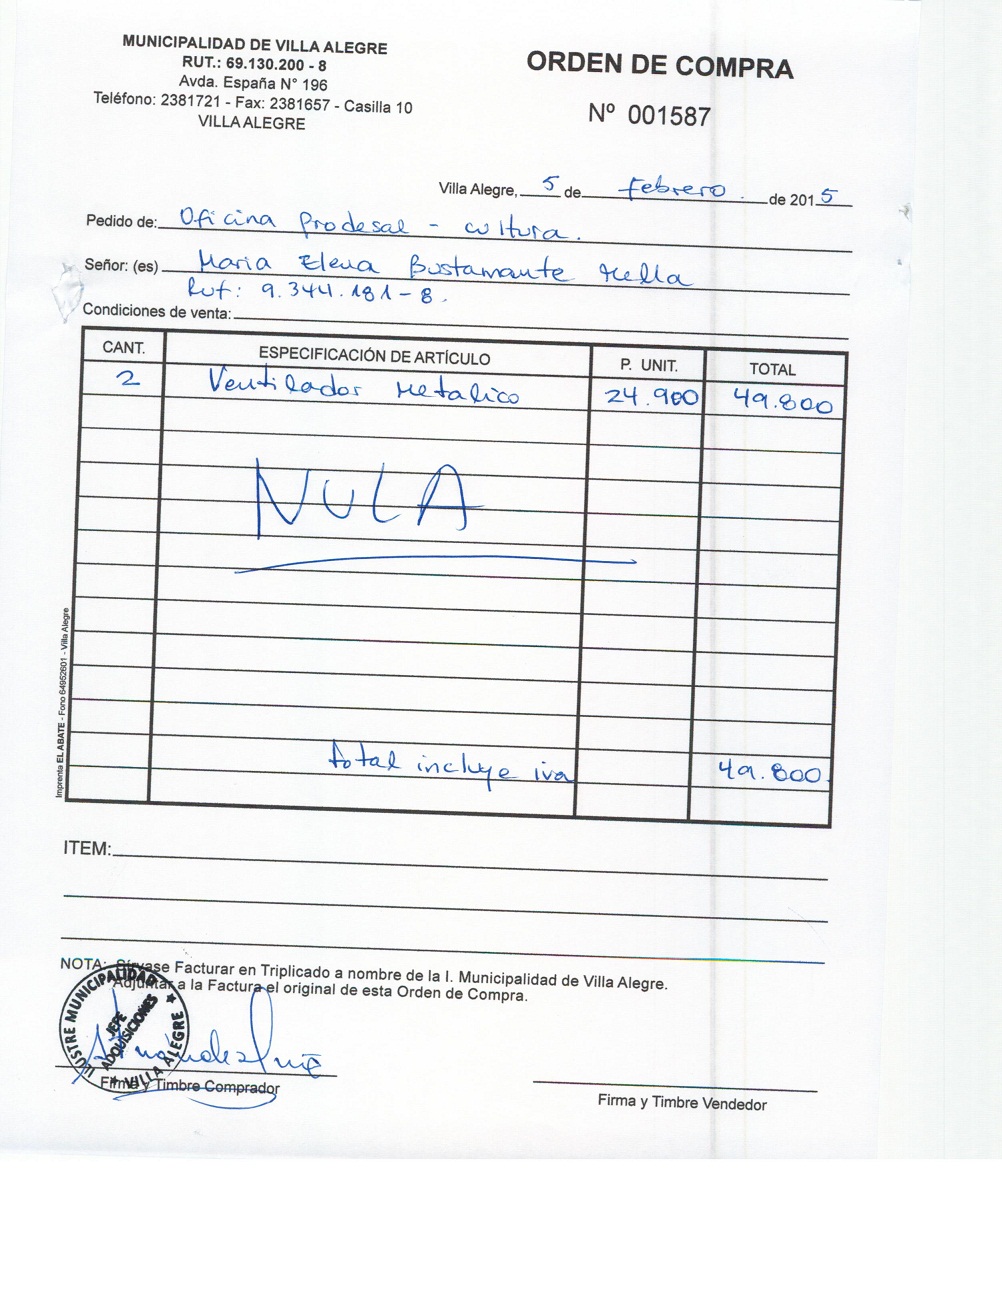 MUNICIPALIDAD DE VILLA ALEGRE
RUT.: 69.130.200 - 8
Avda. España N° 196
Teléfono: 2381721 - Fax: 2381657 - Casilla 10
VILLA ALEGRE
ORDEN DE COMPRA
Nº 001587
Villa Alegre, 5 de febrero. de 2015
Pedido de: Oficina Prodesal - cultura.
Señor: (es) Maria Elena Bustamante Mella
Rut: 9.344.181-8.
Condiciones de venta:
CANT. ESPECIFICACIÓN DE ARTÍCULO P. UNIT. TOTAL
2 Ventilador Metalico 24.900 49.800
NULA
total incluye iva 49.800.
Imprenta EL ABATE - Fono 64952601 - Villa Alegre
ITEM:
NOTA: Sírvase Facturar en Triplicado a nombre de la I. Municipalidad de Villa Alegre.
Adjuntar a la Factura el original de esta Orden de Compra.
ILUSTRE MUNICIPALIDAD
JEFE
ADQUISICIONES
★ VILLA ALEGRE ★
Firma y Timbre Comprador
Firma y Timbre Vendedor